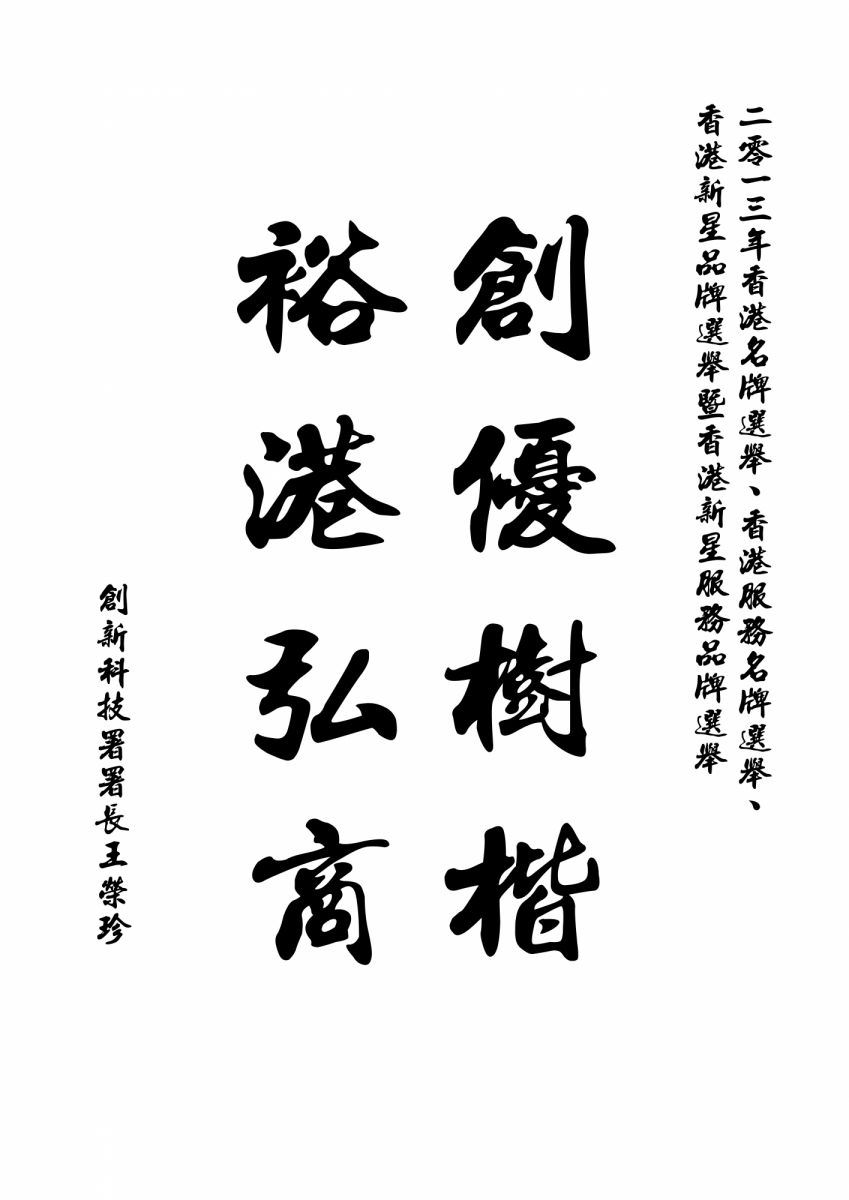 二零一三年香港名牌選舉、香港服務名牌選舉、
香港新星品牌選舉暨香港新星服務品牌選舉
創優樹楷
裕港弘商
創新科技署署長王榮珍